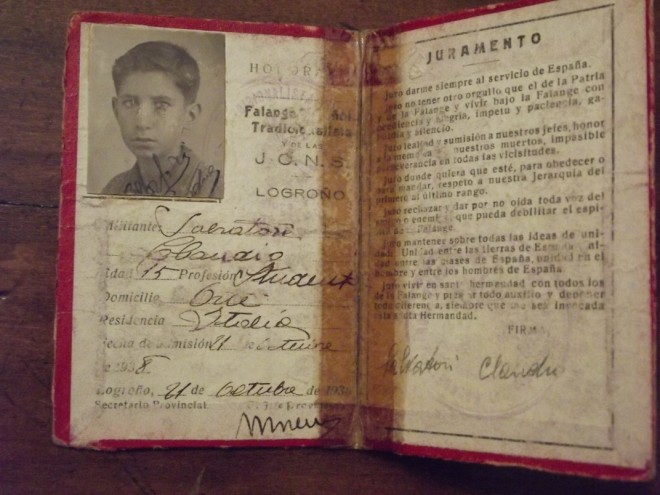 HONOR
Falange
Tradicionalista
Y DE LAS
J.O.N.S.
LOGROÑO
Militante Salvatori
Claudio
Eda 15 Profesión Student
Domicilio
Residencia
Fecha de admisión 21 de octubre
de 1938
Logroño, 21 de octubre de 193
Secretario Provincial
JURAMENTO
Juro darme siempre al servicio de España.
Juro no tener otro orgullo que el de la Patria
y de la Falange y vivir bajo la Falange con
obediencia y alegría, ímpetu y paciencia, ga-
y silencio.
Juro lealtad y sumisión a nuestros jefes, honor
a la memoria de nuestros muertos, impasible
perseverancia en todas las vicisitudes.
Juro donde quiera que esté, para obedecer o
para mandar, respeto a nuestra Jerarquía del
al último rango.
Juro rechazar y dar por no oída toda voz del
que pueda debilitar el espí-
Falange.
Juro mantener sobre todas las ideas de uni-
dad. Unidad entre las tierras de España,
dad entre las clases de España, unidad en el
hombre y entre los hombres de España
Juro vivir en santa hermandad con todos los
de la Falange y prestar todo auxilio y deponer
diferencia, siempre que me sea invocada
esta santa Hermandad.
FIRMA
Salvatori Claudio